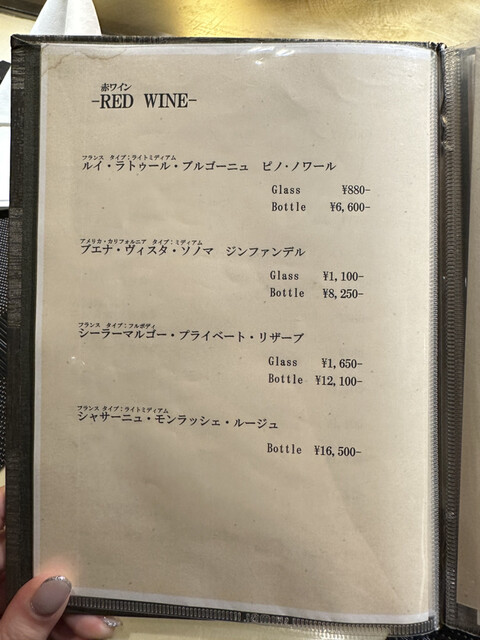 赤ワイン
-RED WINE-
フランス タイプ：ライトミディアム
ルイ・ラトゥール・ブルゴーニュ ピノ・ノワール
Glass ¥880-
Bottle ¥6,600-
アメリカ・カリフォルニア タイプ：ミディアム
ブエナ・ヴィスタ・ソノマ ジンファンデル
Glass ¥1,100-
Bottle ¥8,250-
フランス タイプ：フルボディ
シーラーマルゴー・プライベート・リザーブ
Glass ¥1,650-
Bottle ¥12,100-
フランス タイプ：ライトミディアム
シャサーニュ・モンラッシェ・ルージュ
Bottle ¥16,500-